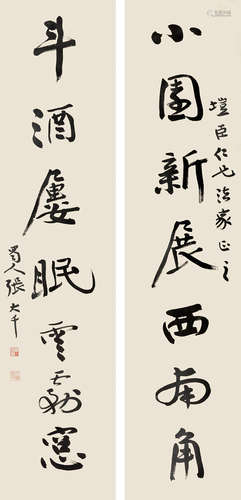 小園新展西南角
塏臣仁兄法家正之
斗酒屢眠雲窓
蜀人張大千